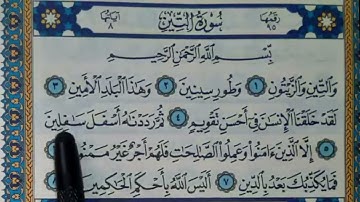 رقمها ٩٥
سورة التين
آياتها ٨
بِسْمِ اللَّهِ الرَّحْمَٰنِ الرَّحِيمِ
وَالتِّينِ وَالزَّيْتُونِ ١ وَطُورِ سِينِينَ ٢ وَهَٰذَا الْبَلَدِ الْأَمِينِ ٣
لَقَدْ خَلَقْنَا الْإِنسَانَ فِي أَحْسَنِ تَقْوِيمٍ ٤ ثُمَّ رَدَدْنَاهُ أَسْفَلَ سَافِلِينَ
٥ إِلَّا الَّذِينَ آمَنُوا وَعَمِلُوا الصَّالِحَاتِ فَلَهُمْ أَجْرٌ غَيْرُ مَمْنُونٍ
فَمَا يُكَذِّبُكَ بَعْدُ بِالدِّينِ ٧ أَلَيْسَ اللَّهُ بِأَحْكَمِ الْحَاكِمِينَ